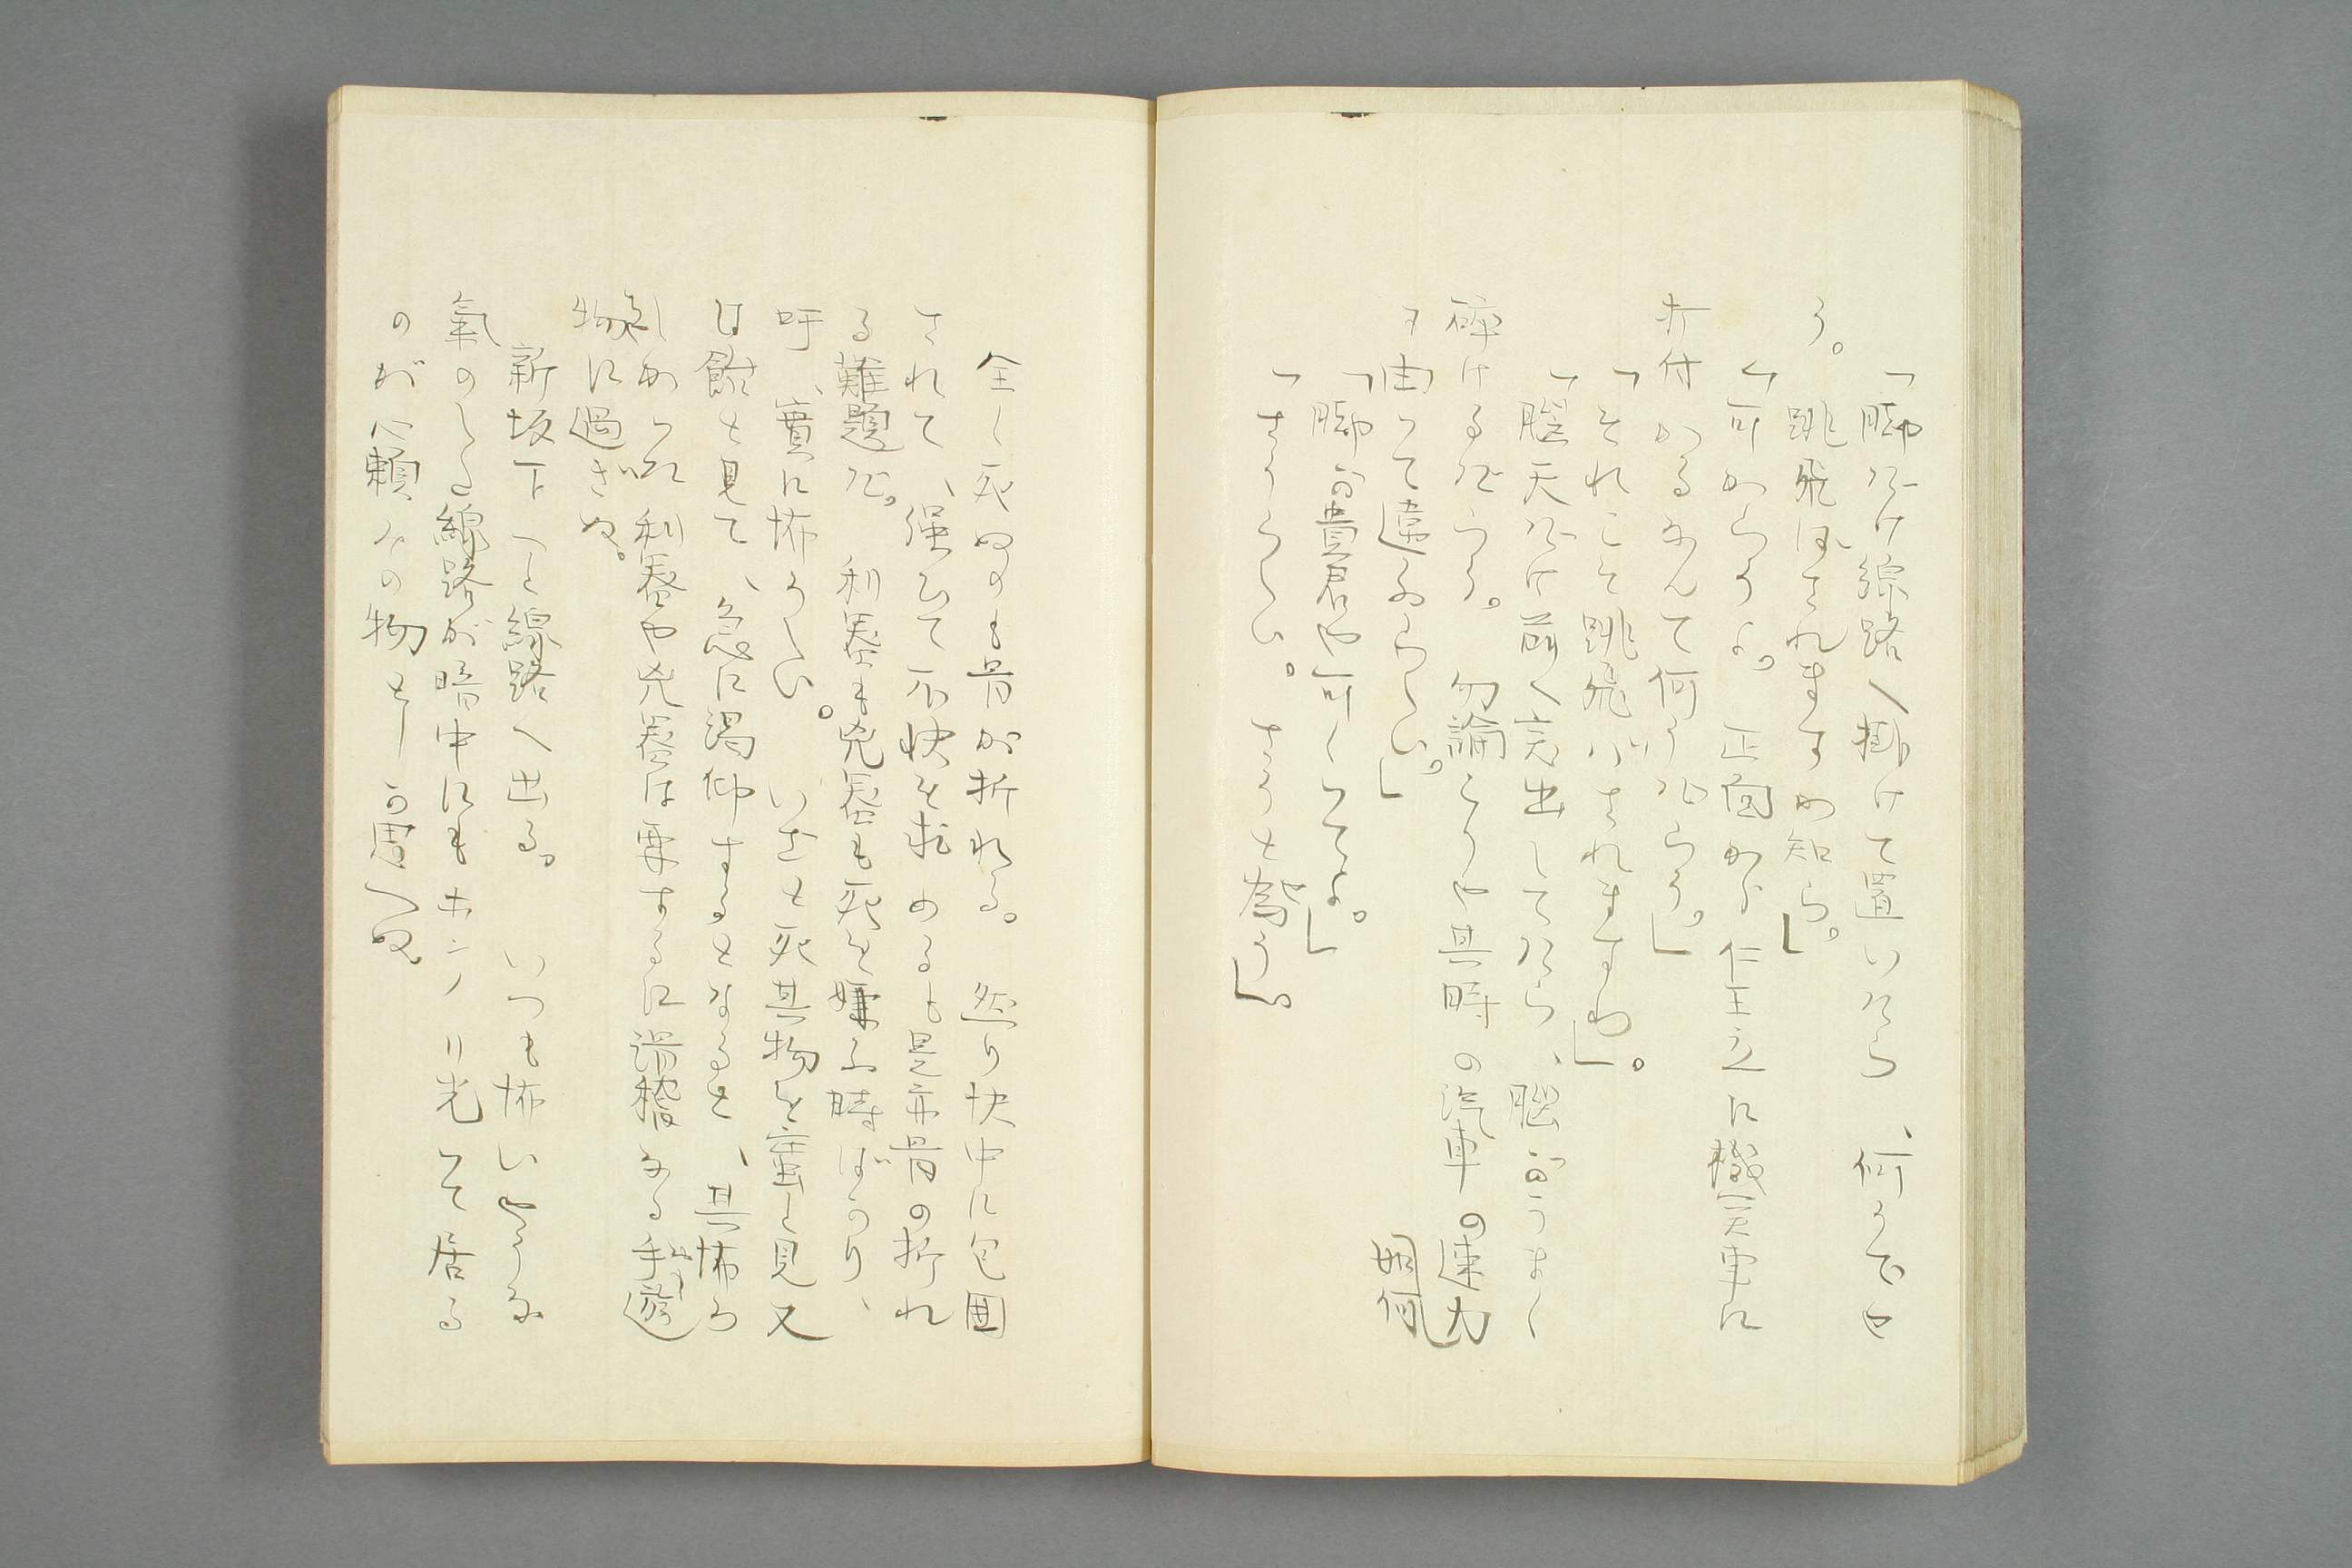 「脚だけ線路へ掛けて置いたら、何うでせ
う。跳飛ばされますか知ら。」
「可からうよ。正面から仁王立に機関車に
打付かるなんて何うだらう。」
「それこそ跳飛ばされますわ」。
「脳天だけ前へ突出してたら、脳がうまく
碎けるだらう。勿論さうや其時の汽車の速力
に由つて違ふらしい。」
「脚が貴君や可くつてよ。」
「さうらしい。さうと為う」。
全く死ぬのも骨が折れる。然り快中に包囲
されて、强ひて不快を求めるも是亦骨の折れ
る難題だ。利器も兇器も死を嫌ふ時ばかり、
吁、實に怖ろしい。いざと死其物を凝と見又
は餘と見て、急に渇仰するとなると、其怖ろ
しかつた利器や兇器は要するに滑稽なる手遊
物に過ぎぬ。
新坂下へと線路へ出る。いつも怖いやうな
氣のした線路が暗中にもホンノリ光つて居る
のが只賴みの物としか思へぬ。